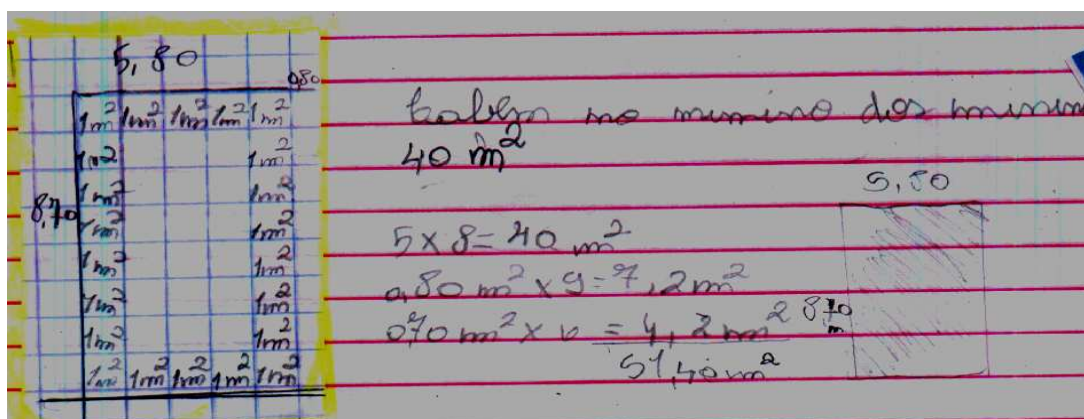 5,80
0,80
1m² 1m² 1m² 1m² 1m²
1m² 1m²
1m² 1m²
8,70
1m² 1m²
1m² 1m²
1m² 1m²
1m² 1m²
1m² 1m² 1m² 1m² 1m²
no minimo dos minim
40 m²
5 x 8 = 40 m²
0,80 m² x 9 = 7,2 m²
0,70 m² x 6 = 4,2 m²
51,40 m²
5,80
870
m